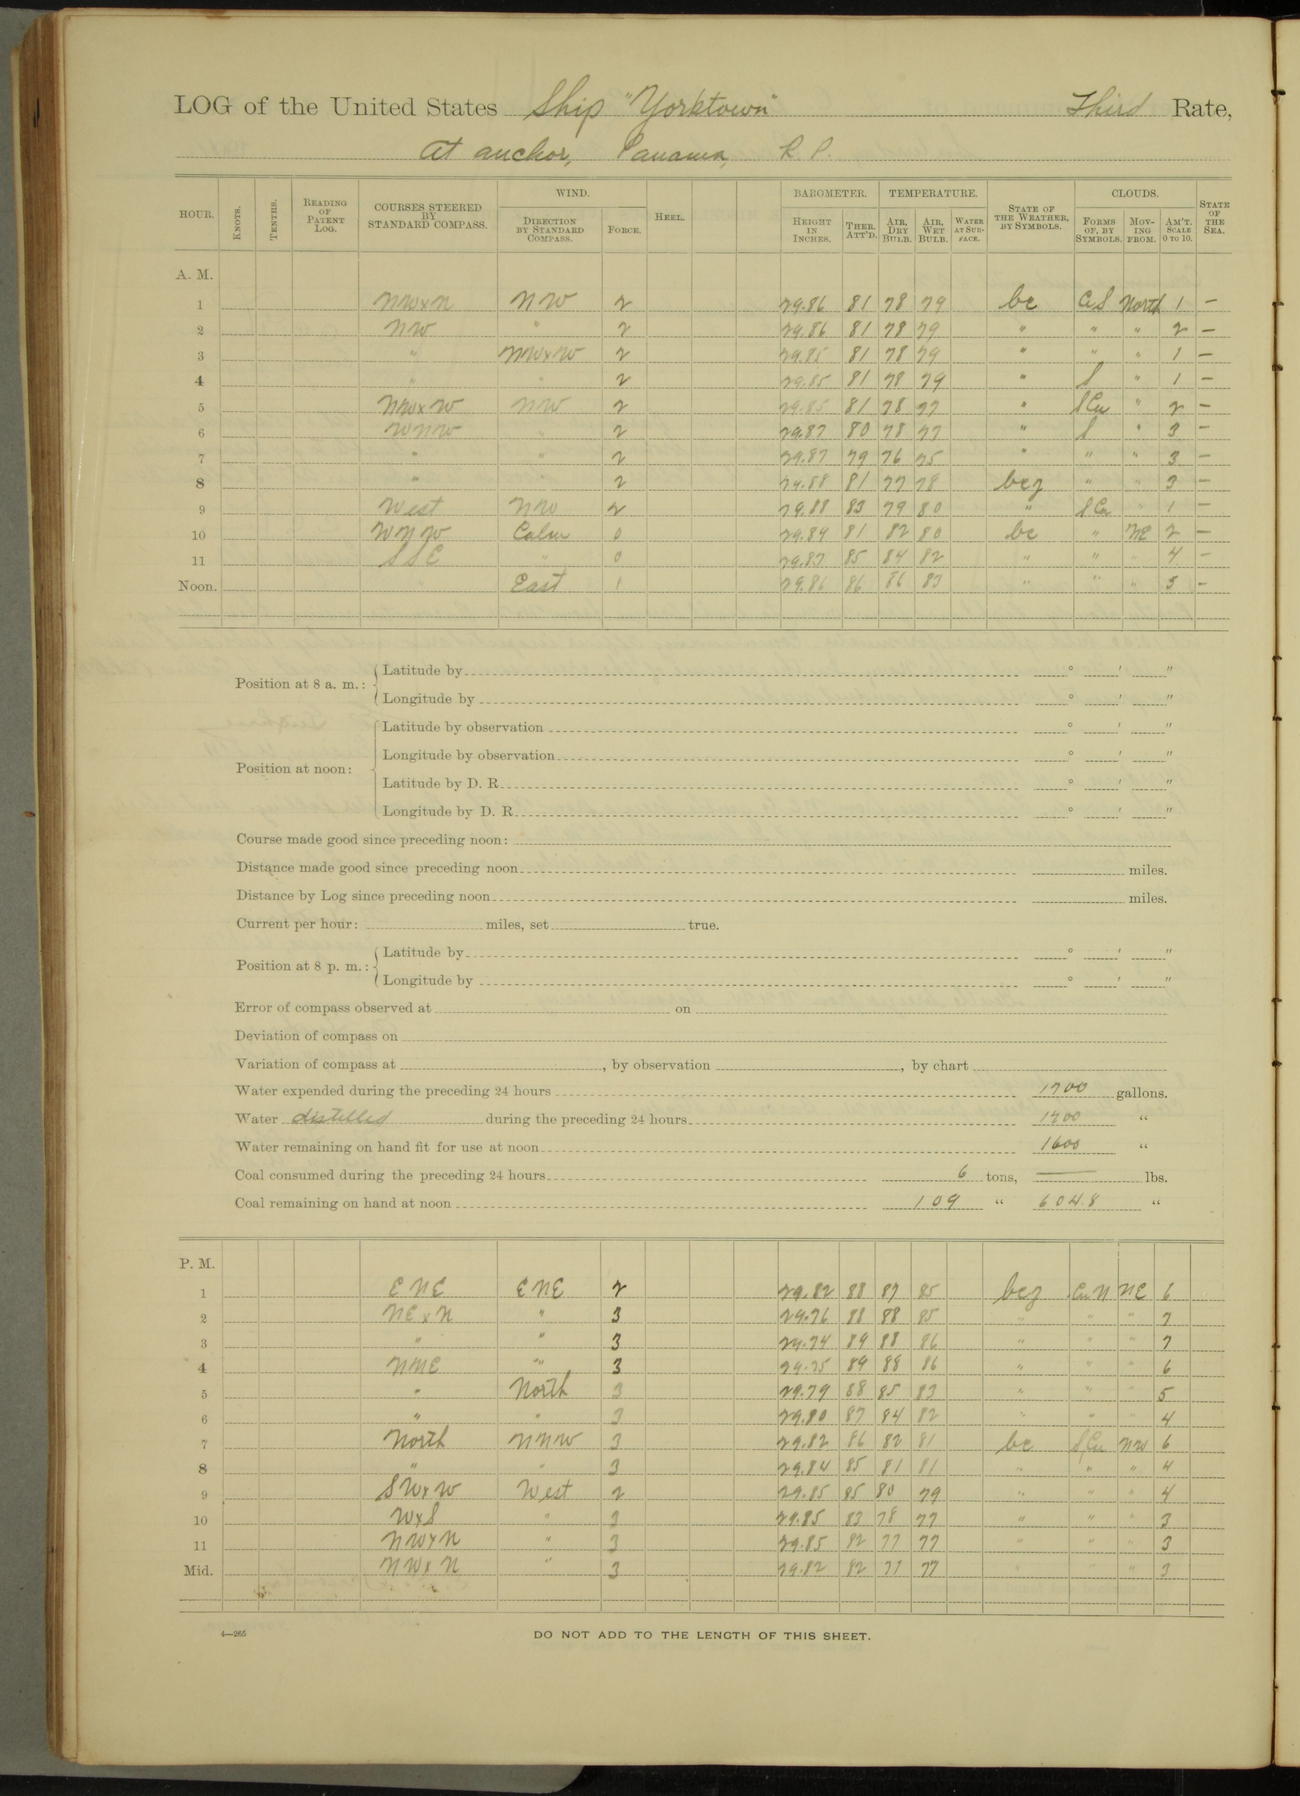 LOG of the United States Ship "Yorktown" Third Rate,
At anchor, Panama, R. P.
HOUR. KNOTS. TENTHS. READING OF PATENT LOG. COURSES STEERED BY STANDARD COMPASS. WIND. DIRECTION BY STANDARD COMPASS. FORCE. HEEL. BAROMETER. HEIGHT IN INCHES. THER. ATT'D. TEMPERATURE. AIR, DRY BULB. AIR, WET BULB. WATER AT SURFACE. STATE OF THE WEATHER, BY SYMBOLS. CLOUDS. FORMS OF, BY SYMBOLS. MOVING FROM. AM'T. SCALE 0 TO 10. STATE OF THE SEA.
A. M.
1 NWxN NW 2 29.86 81 78 79 bc CiS North 1 –
2 NW " 2 29.86 81 78 79 " " " 2 –
3 " NWxW 2 29.85 81 78 79 " " " 1 –
4 " " 2 29.85 81 78 79 " S " 1 –
5 NWxW NW 2 29.85 81 78 77 " SCu " 2 –
6 WNW " 2 29.87 80 78 77 " S " 3 –
7 " " 2 29.87 79 76 75 " " " 3 –
8 " " 2 29.88 81 77 78 bcz " " 3 –
9 West NW 2 29.88 83 79 80 " SCu " 1 –
10 WNW Calm 0 29.89 81 82 80 bc " NE 2 –
11 SSE " 0 29.87 85 84 82 " " " 4 –
Noon. " East 1 29.86 86 86 83 " " " 5 –
Position at 8 a. m.: Latitude by ° ' "
Longitude by ° ' "
Position at noon: Latitude by observation ° ' "
Longitude by observation ° ' "
Latitude by D. R. ° ' "
Longitude by D. R. ° ' "
Course made good since preceding noon:
Distance made good since preceding noon miles.
Distance by Log since preceding noon miles.
Current per hour: miles, set true.
Position at 8 p. m.: Latitude by ° ' "
Longitude by ° ' "
Error of compass observed at on
Deviation of compass on
Variation of compass at , by observation , by chart
Water expended during the preceding 24 hours 1700 gallons.
Water distilled during the preceding 24 hours 1700 "
Water remaining on hand fit for use at noon 1600 "
Coal consumed during the preceding 24 hours 6 tons, — lbs.
Coal remaining on hand at noon 109 " 604.8 "
P. M.
1 ENE ENE 2 29.82 88 87 85 bcz CuN NE 6
2 NExN " 3 29.76 88 88 85 " " " 7
3 " " 3 29.74 89 88 86 " " " 7
4 NNE " 3 29.75 89 88 86 " " " 6
5 " North 3 29.79 88 85 83 " " " 5
6 " " 3 29.80 87 84 82 " " " 4
7 North NNW 3 29.82 86 82 81 bc SCu NW 6
8 " " 3 29.84 85 81 81 " " " 4
9 SWxW West 2 29.85 85 80 79 " " " 4
10 WxS " 3 29.85 83 78 77 " " " 3
11 NWxN " 3 29.85 82 77 77 " " " 3
Mid. NWxN " 3 29.82 82 77 77 " " " 3
4—265 DO NOT ADD TO THE LENGTH OF THIS SHEET.